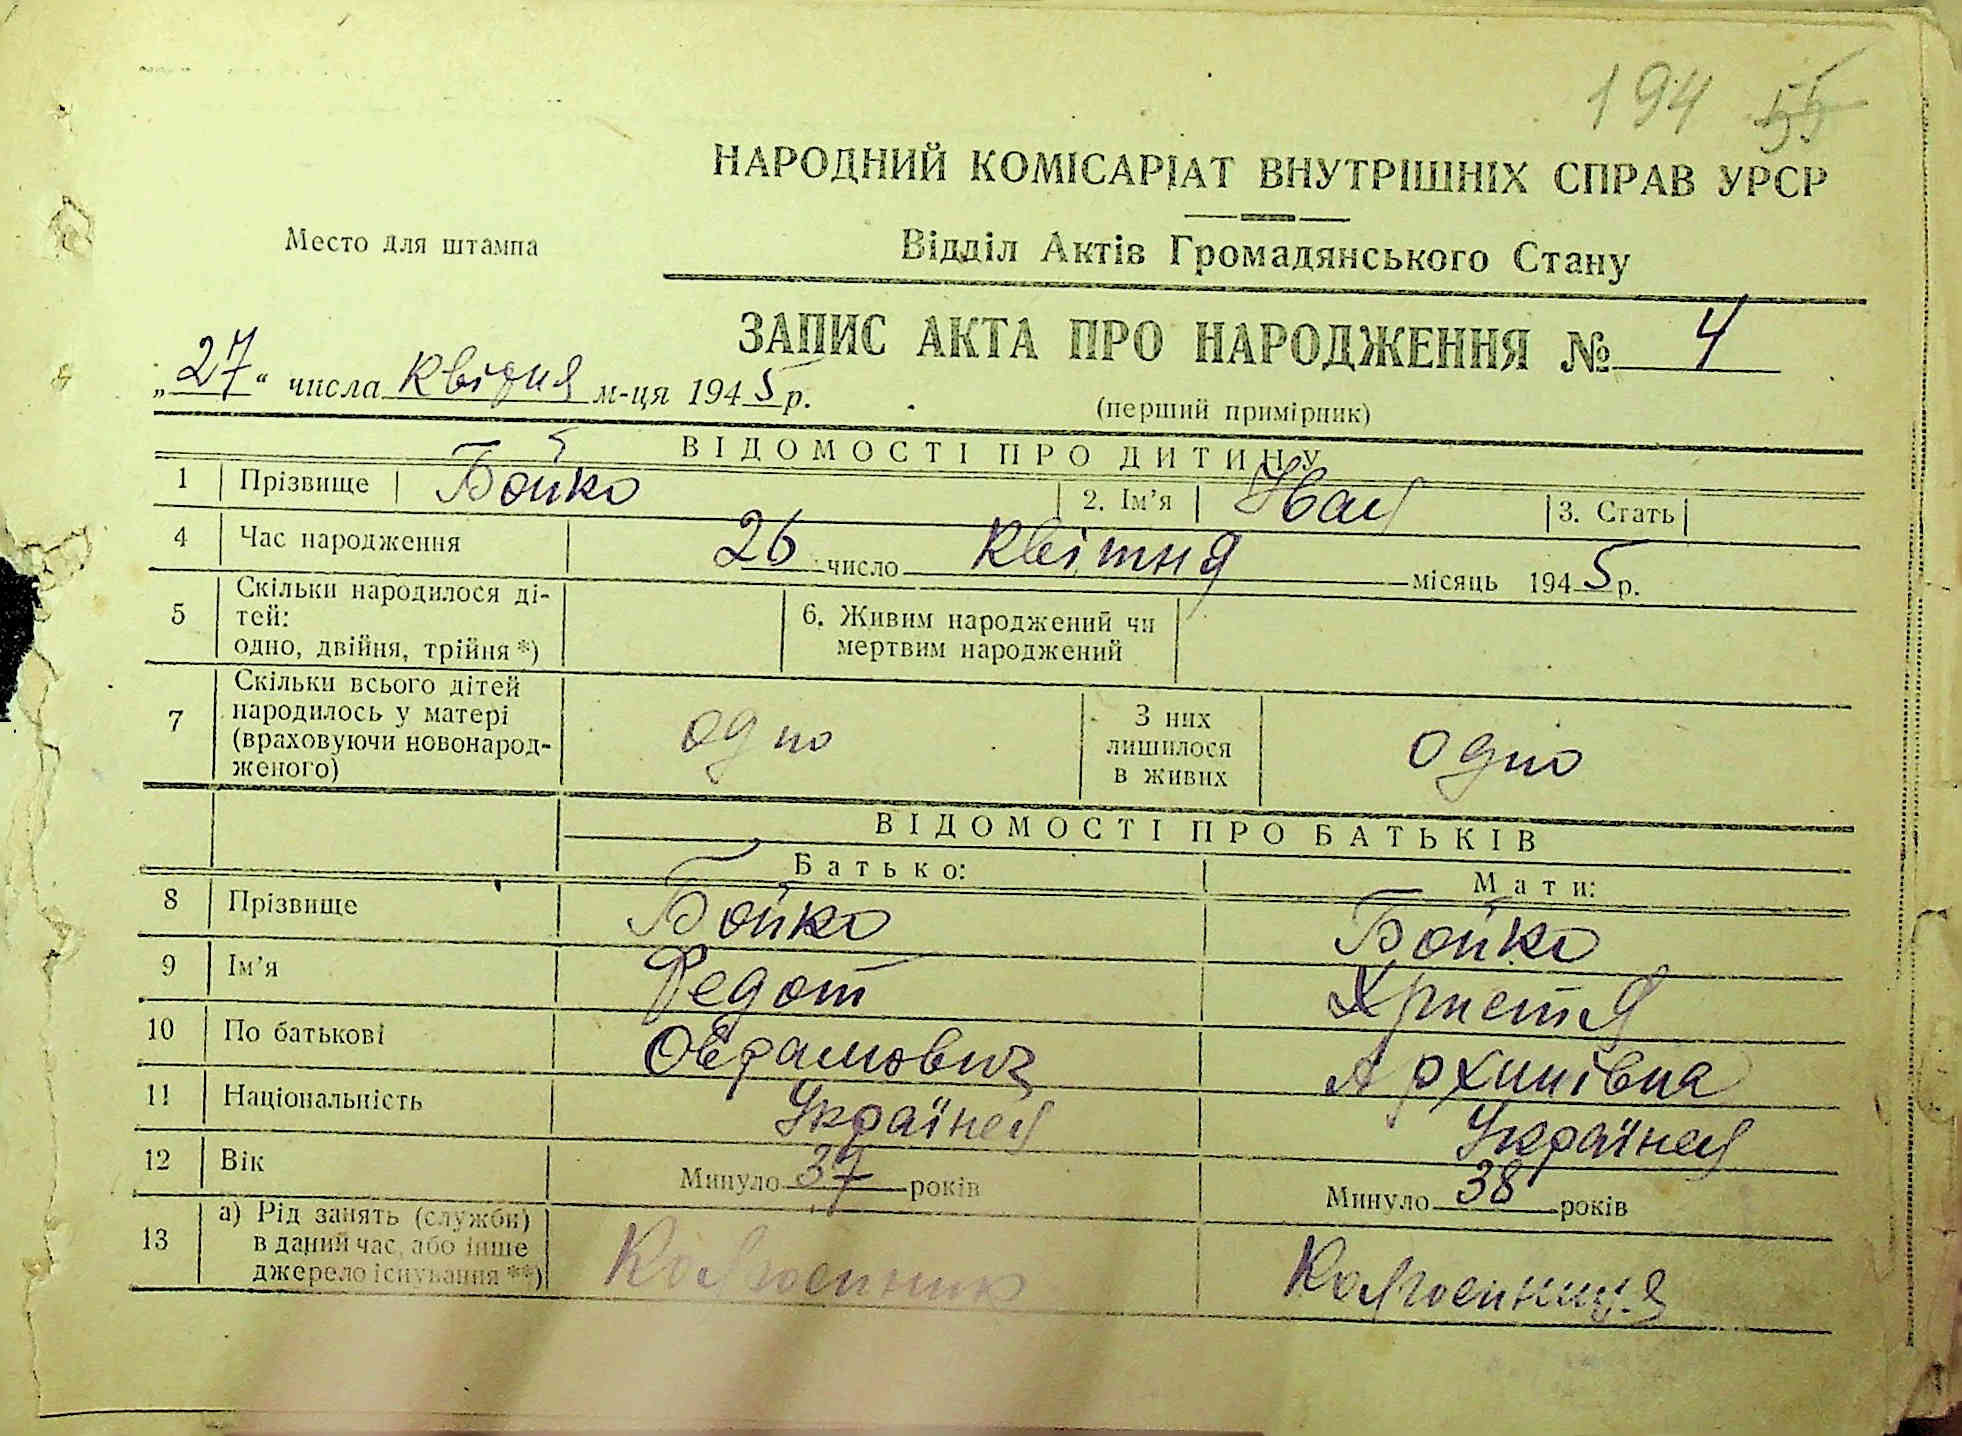 194 55
НАРОДНИЙ КОМІСАРІАТ ВНУТРІШНІХ СПРАВ УРСР
Место для штампа
Відділ Актів Громадянського Стану
ЗАПИС АКТА ПРО НАРОДЖЕННЯ № 4
„27“ числа квітня м-ця 1945 р.
(перший примірник)
ВІДОМОСТІ ПРО ДИТИНУ
1 Прізвище Бойко 2. Ім'я Іван 3. Стать
4 Час народження 26 число квітня місяць 1945 р.
5 Скільки народилося ді-
тей:
одно, двійня, трійня *)
6. Живим народжений чи
мертвим народжений
7 Скільки всього дітей
народилось у матері
(враховуючи новонарод-
женого)
одно
З них
лишилося
в живих
одно
ВІДОМОСТІ ПРО БАТЬКІВ
Батько: Мати:
8 Прізвище Бойко Бойко
9 Ім'я Федот Христя
10 По батькові Архипівна
11 Національність Українец Українец
12 Вік Минуло 37 років Минуло 38 років
13 а) Рід занять (служби)
в даний час, або інше
джерело існування **)
Колгоспник Колгоспниця